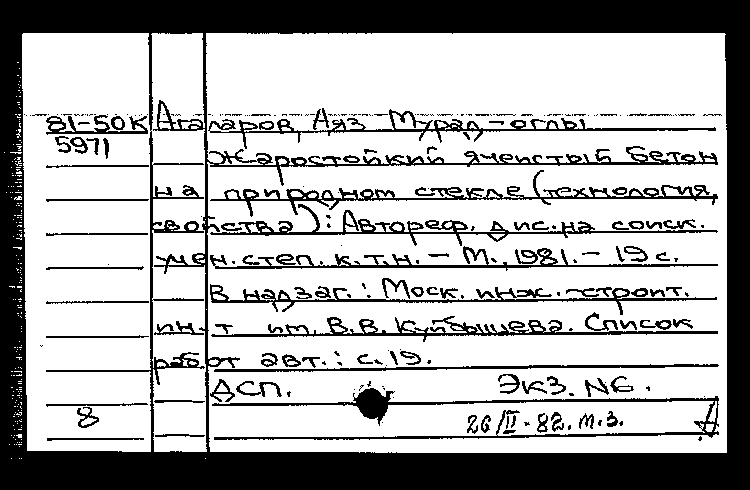 81-50К Агаларов, Аяз Мурад-оглы
5971 Жаростойкий ячеистый бетон
на природном стекле (технология,
свойства): Автореф. дис. на соиск.
учен. степ. к.т.н. - М., 1981. - 19 с.
В надзаг.: Моск. инж.-строит.
ин-т им. В.В. Куйбышева. Список
работ авт.: с. 19.
ДСП. Экз. N6.
8 26/II-82. м.з. А